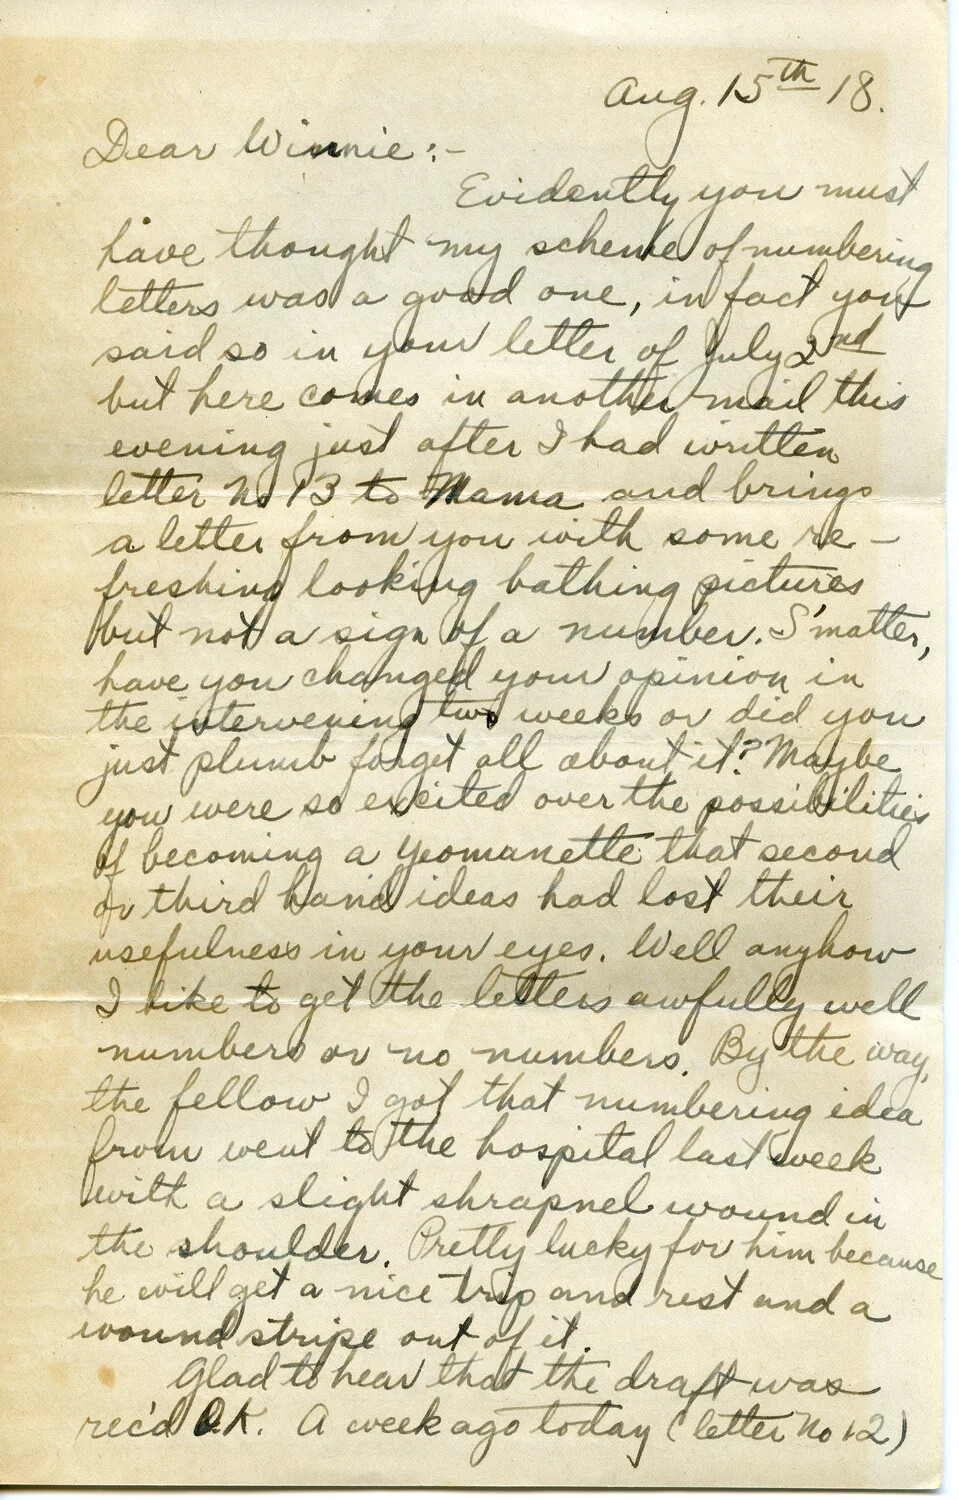 Aug. 15th 18.
Dear Winnie:-
Evidently you must
have thought my scheme of numbering
letters was a good one, in fact you
said so in your letter of July 2nd
but here comes in another mail this
evening just after I had written
letter No 13 to Mama and brings
a letter from you with some re-
freshing looking bathing pictures
but not a sign of a number. S'matter,
have you changed your opinion in
the intervening two weeks or did you
just plumb forget all about it? Maybe
you were so excited over the possibilities
of becoming a yeomanette that second
or third hand ideas had lost their
usefulness in your eyes. Well anyhow
I like to get the letters awfully well
numbers or no numbers. By the way,
the fellow I got that numbering idea
from went to the hospital last week
with a slight shrapnel wound in
the shoulder. Pretty lucky for him because
he will get a nice trip and rest and a
wound stripe out of it.
Glad to hear that the draft was
rec'd O.K. A week ago today (letter No 12)